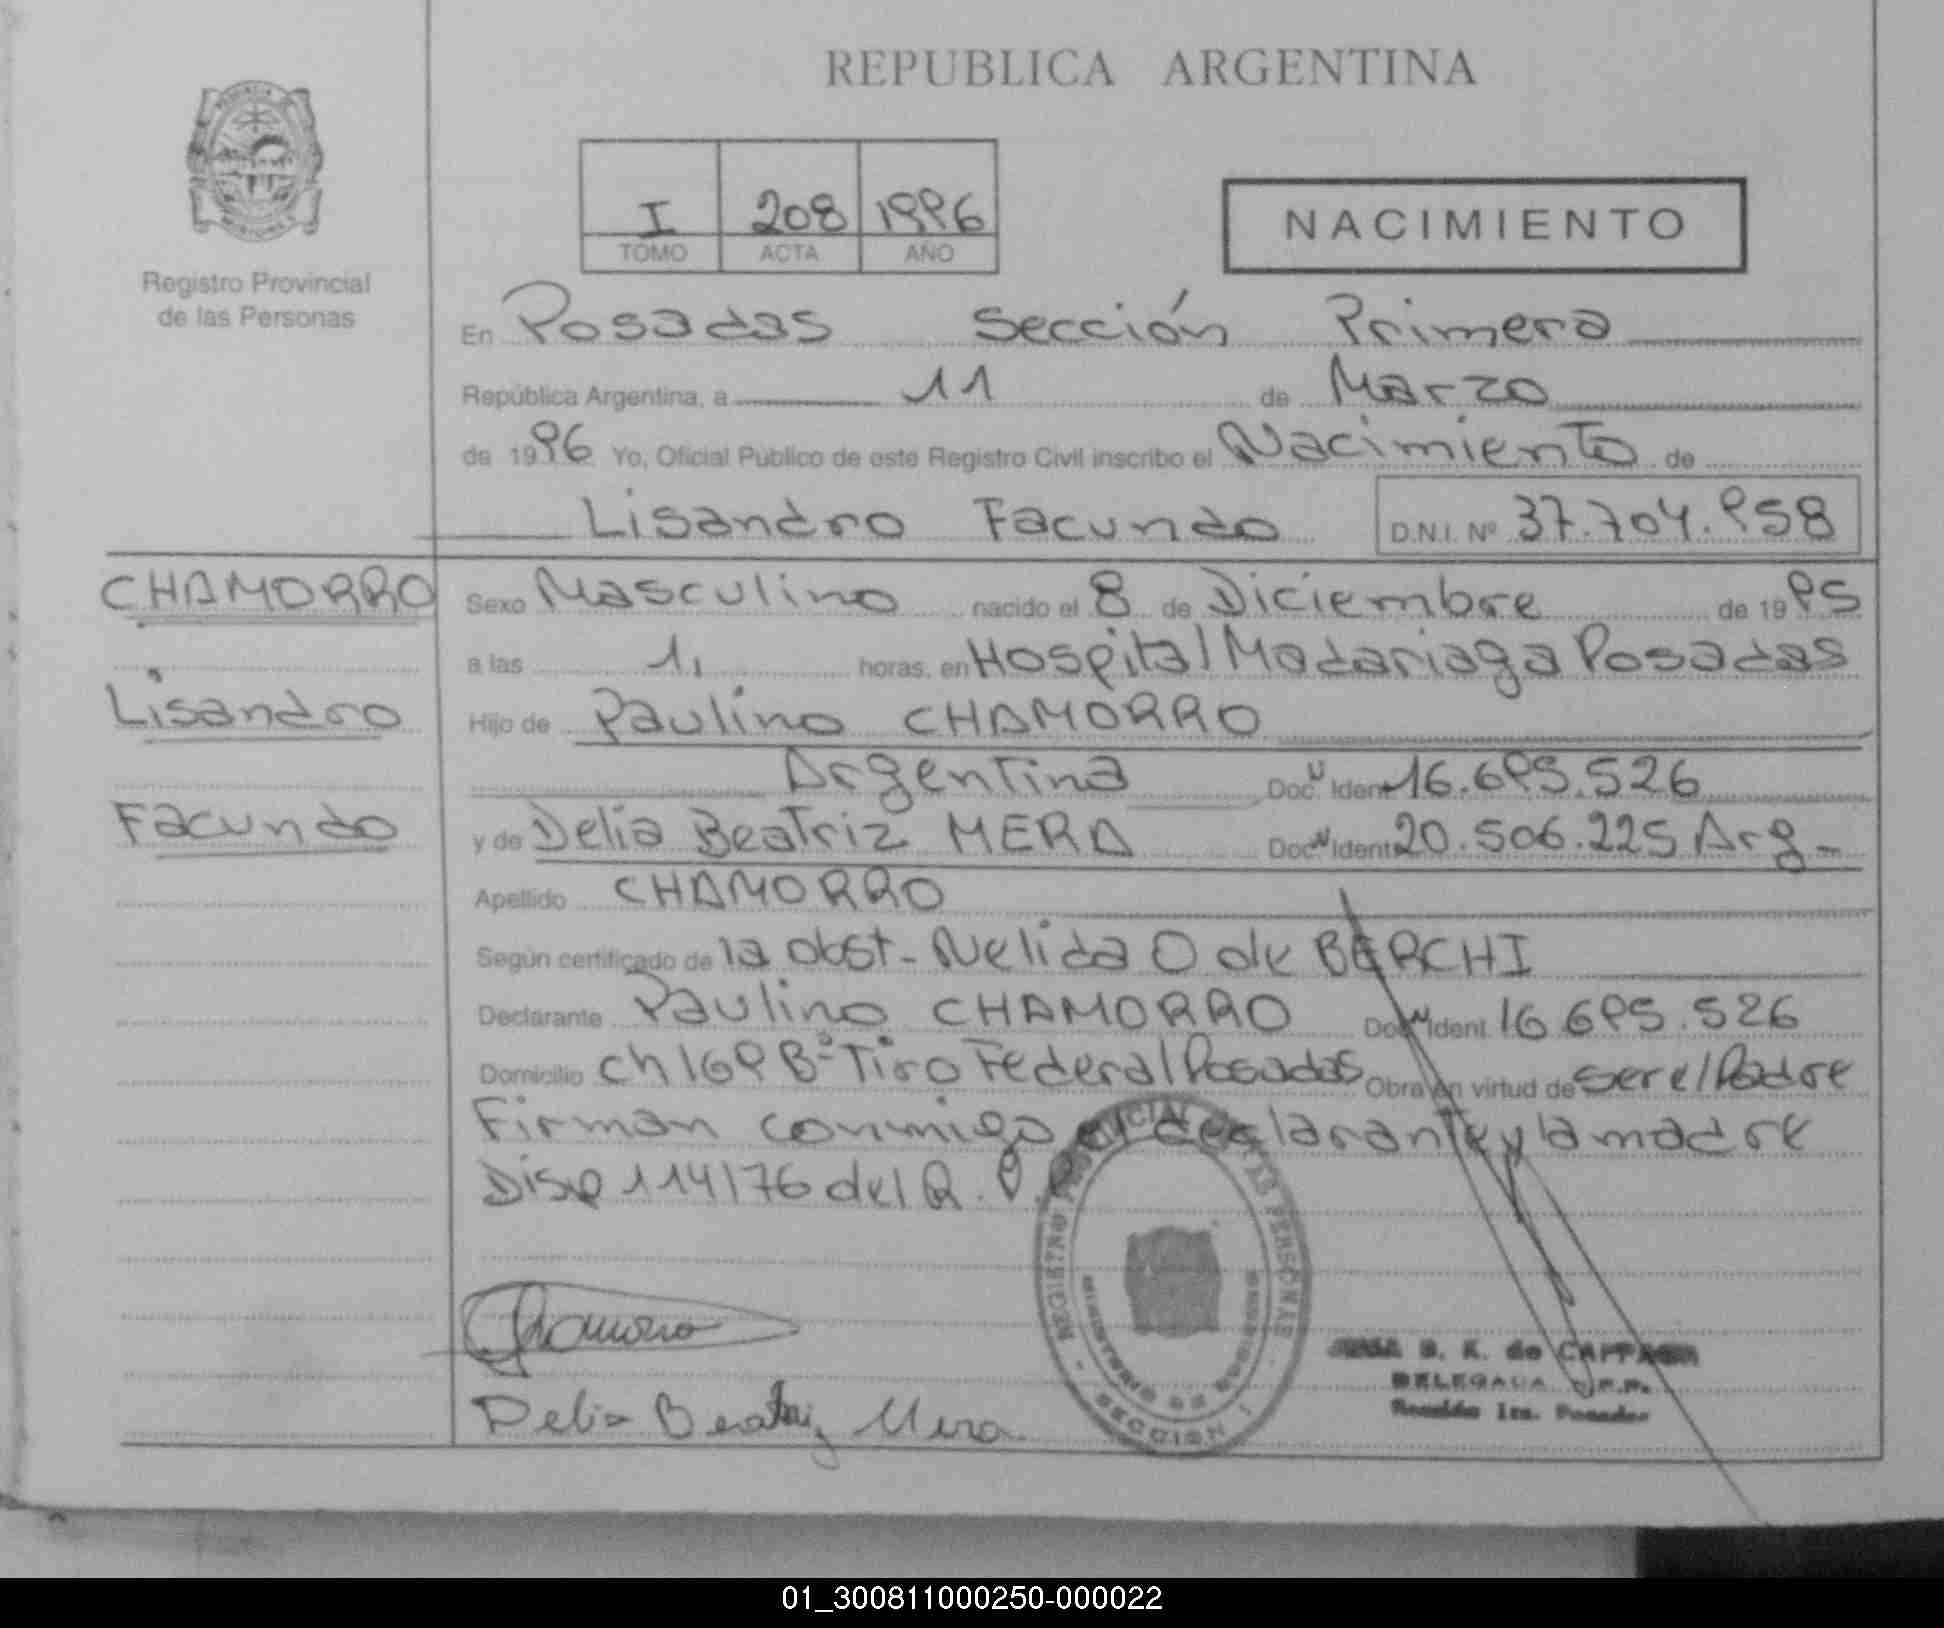 REPUBLICA ARGENTINA
Registro Provincial
de las Personas
I 208 1996
TOMO ACTA AÑO
NACIMIENTO
En Posadas Sección Primera
República Argentina, a 11 de Marzo
de 1996 Yo, Oficial Público de este Registro Civil inscribo el Nacimiento de
Lisandro Facundo D.N.I. Nº 37.704.958
CHAMORRO
Lisandro
Facundo
Sexo Masculino nacido el 8 de Diciembre de 1995
a las 1, horas, en Hospital Madariaga Posadas
Hijo de Paulino CHAMORRO
Argentina Doc. Ident. 16.695.526
y de Delia Beatriz MERA Doc. Ident. 20.506.225 Arg-
Apellido CHAMORRO
Según certificado de la obst- Nelida O de BERCHI
Declarante Paulino CHAMORRO Doc. Ident. 16.695.526
Domicilio ch 169 Bº Tiro Federal Posadas Obra en virtud de ser el Padre
Firman conmigo el declarante y la madre
Disp 114/76 del R. P. P
Chamorro
Delia Beatriz Mera
REGISTRO PROVINCIAL DE LAS PERSONAS
MINISTERIO DE GOBIERNO
SECCION 1
B. K. de
DELEGADA R.P.P.
Sección 1ra. Posadas
01_300811000250-000022